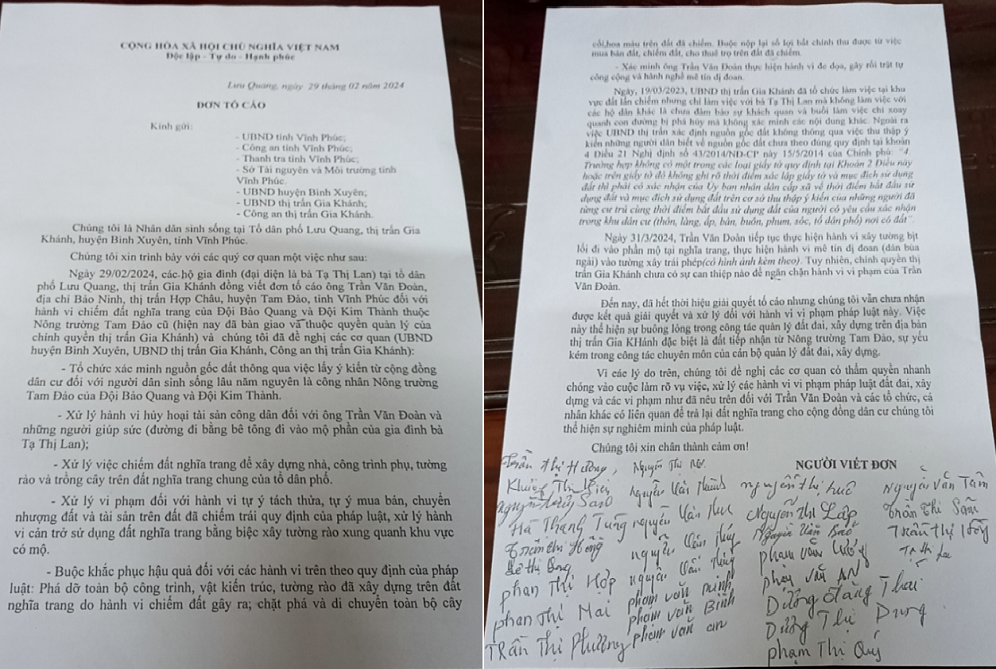 CỘNG HÒA XÃ HỘI CHỦ NGHĨA VIỆT NAM
Độc lập - Tự do - Hạnh phúc
Lưu Quang, ngày 29 tháng 02 năm 2024
ĐƠN TỐ CÁO
Kính gửi:
- UBND tỉnh Vĩnh Phúc;
- Công an tỉnh Vĩnh Phúc;
- Thanh tra tỉnh Vĩnh Phúc;
- Sở Tài nguyên và Môi trường tỉnh
Vĩnh Phúc.
- UBND huyện Bình Xuyên;
- UBND thị trấn Gia Khánh;
- Công an thị trấn Gia Khánh.
Chúng tôi là Nhân dân sinh sống tại Tổ dân phố Lưu Quang, thị trấn Gia
Khánh, huyện Bình Xuyên, tỉnh Vĩnh Phúc.
Chúng tôi xin trình bày với các quý cơ quan một việc như sau:
Ngày 29/02/2024, các hộ gia đình (đại diện là bà Tạ Thị Lan) tại tổ dân
phố Lưu Quang, thị trấn Gia Khánh đồng viết đơn tố cáo ông Trần Văn Đoàn,
địa chỉ Bảo Ninh, thị trấn Hợp Châu, huyện Tam Đảo, tỉnh Vĩnh Phúc đối với
hành vi chiếm đất nghĩa trang của Đội Bảo Quang và Đội Kim Thành thuộc
Nông trường Tam Đảo cũ (hiện nay đã bàn giao và thuộc quyền quản lý của
chính quyền thị trấn Gia Khánh) và chúng tôi đã đề nghị các cơ quan (UBND
huyện Bình Xuyên, UBND thị trấn Gia Khánh, Công an thị trấn Gia Khánh):
- Tổ chức xác minh nguồn gốc đất thông qua việc lấy ý kiến từ cộng đồng
dân cư đối với người dân sinh sống lâu năm nguyên là công nhân Nông trường
Tam Đảo của Đội Bảo Quang và Đội Kim Thành.
- Xử lý hành vi hủy hoại tài sản công dân đối với ông Trần Văn Đoàn và
những người giúp sức (đường đi bằng bê tông đi vào mộ phần của gia đình bà
Tạ Thị Lan);
- Xử lý việc chiếm đất nghĩa trang để xây dựng nhà, công trình phụ, tường
rào và trồng cây trên đất nghĩa trang chung của tổ dân phố.
- Xử lý vi phạm đối với hành vi tự ý tách thửa, tự ý mua bán, chuyển
nhượng đất và tài sản trên đất đã chiếm trái quy định của pháp luật, xử lý hành
vi cản trở sử dụng đất nghĩa trang bằng biệc xây tường rào xung quanh khu vực
có mộ.
- Buộc khắc phục hậu quả đối với các hành vi trên theo quy định của pháp
luật: Phá dỡ toàn bộ công trình, vật kiến trúc, tường rào đã xây dựng trên đất
nghĩa trang do hành vi chiếm đất gây ra; chặt phá và di chuyển toàn bộ cây
cối,hoa màu trên đất đã chiếm. Buộc nộp lại số lợi bất chính thu được từ việc
mua bán đất, chiếm đất, cho thuê trọ trên đất đã chiếm.
- Xác minh ông Trần Văn Đoàn thực hiện hành vi đe dọa, gây rối trật tự
công cộng và hành nghề mê tín dị đoan.
Ngày, 19/03/2023, UBND thị trấn Gia Khánh đã tổ chức làm việc tại khu
vực đất lấn chiếm nhưng chỉ làm việc với bà Tạ Thị Lan mà không làm việc với
các hộ dân khác là chưa đảm bảo sự khách quan và buổi làm việc chỉ xoay
quanh con đường bị phá hủy mà không xác minh các nội dung khác. Ngoài ra
việc UBND thị trấn xác định nguồn gốc đất không thông qua việc thu thập ý
kiến những người dân biết về nguồn gốc đất chưa theo đúng quy định tại khoản
4 Điều 21 Nghị định số 43/2014/NĐ-CP này 15/5/2014 của Chính phủ: "4.
Trường hợp không có một trong các loại giấy tờ quy định tại Khoản 2 Điều này
hoặc trên giấy tờ đó không ghi rõ thời điểm xác lập giấy tờ và mục đích sử dụng
đất thì phải có xác nhận của Ủy ban nhân dân cấp xã về thời điểm bắt đầu sử
dụng đất và mục đích sử dụng đất trên cơ sở thu thập ý kiến của những người đã
từng cư trú cùng thời điểm bắt đầu sử dụng đất của người có yêu cầu xác nhận
trong khu dân cư (thôn, làng, ấp, bản, buôn, phum, sóc, tổ dân phố) nơi có đất".
Ngày 31/3/2024, Trần Văn Đoàn tiếp tục thực hiện hành vi xây tường bịt
lối đi vào phần mộ tại nghĩa trang, thực hiện hành vi mê tín dị đoan (dán bùa
ngải) vào tường xây trái phép(có hình ảnh kèm theo). Tuy nhiên, chính quyền thị
trấn Gia Khánh chưa có sự can thiệp nào để ngăn chặn hành vi vi phạm của Trần
Văn Đoàn.
Đến nay, đã hết thời hiệu giải quyết tố cáo nhưng chúng tôi vẫn chưa nhận
được kết quả giải quyết và xử lý đối với hành vi vi phạm pháp luật này. Việc
này thể hiện sự buông lỏng trong công tác quản lý đất đai, xây dựng trên địa bàn
thị trấn Gia KHánh đặc biệt là đất tiếp nhận từ Nông trường Tam Đảo, sự yếu
kém trong công tác chuyên môn của cán bộ quản lý đất đai, xây dựng.
Vì các lý do trên, chúng tôi đề nghị các cơ quan có thẩm quyền nhanh
chóng vào cuộc làm rõ vụ việc, xử lý các hành vi vi phạm pháp luật đất đai, xây
dựng và các vi phạm như đã nêu trên đối với Trần Văn Đoàn và các tổ chức, cá
nhân khác có liên quan để trả lại đất nghĩa trang cho cộng đồng dân cư chúng tôi
thể hiện sự nghiêm minh của pháp luật.
Chúng tôi xin chân thành cảm ơn!
NGƯỜI VIẾT ĐƠN
Trần Thị Hường, Nguyễn Thị
Nguyễn Văn Tâm
Nguyễn Thị Huê
Trần Thị Sam
Hà Thanh Tùng Nguyễn Văn Nguyễn Thị Lập
Trần Thị Hồng Nguyễn Văn Huy
Phạm Văn Cường
Phan Thị Hợp Nguyễn Văn
Phạm Văn Minh
Dương Đăng Thái
Phan Thị Mai Phạm Văn Bình
Dương Thị Dung
Trần Thị Phương Phạm Văn An
Phạm Thị Quý